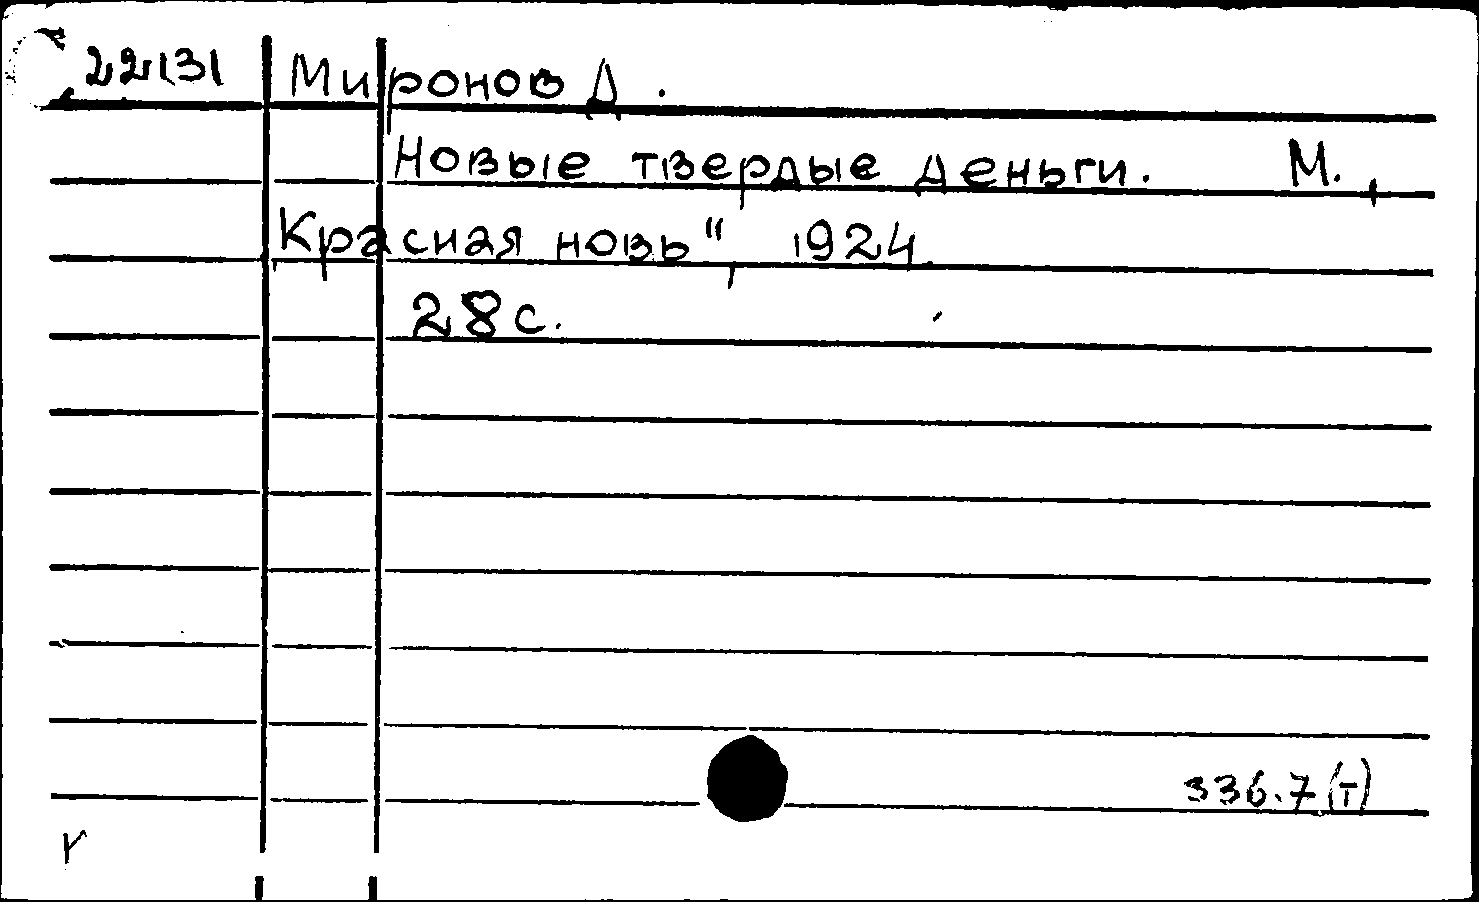 22131 Миронов Д.
Новые твердые деньги. М.,
„Красная новь", 1924.
28 с.
336.7(Т)